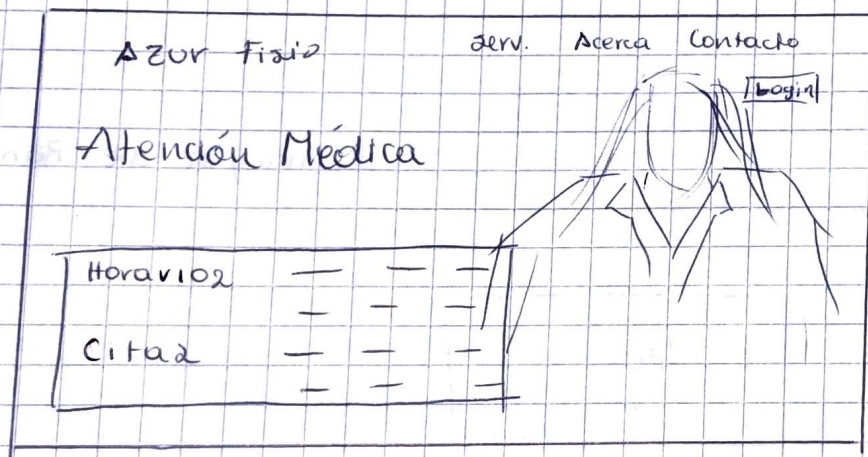 Azur Fisio
Serv. Acerca Contacto
Login
Atención Médica
Horarios
Citas